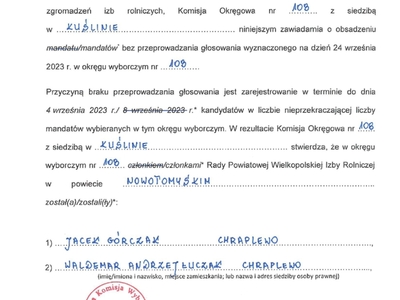 zgromadzeń izb rolniczych, Komisja Okręgowa nr 108 z siedzibą
w KUŚLINIE niniejszym zawiadamia o obsadzeniu
mandatu/mandatów* bez przeprowadzania głosowania wyznaczonego na dzień 24 września
2023 r. w okręgu wyborczym nr 108
Przyczyną braku przeprowadzania głosowania jest zarejestrowanie w terminie do dnia
4 września 2023 r./ 8 września 2023 r.* kandydatów w liczbie nieprzekraczającej liczby
mandatów wybieranych w tym okręgu wyborczym. W rezultacie Komisja Okręgowa nr 108
z siedzibą w KUŚLINIE stwierdza, że w okręgu
wyborczym nr 108 członkiem/członkami* Rady Powiatowej Wielkopolskiej Izby Rolniczej
w powiecie NOWOTOMYSKIM
został(a)/zostali(ły)*:
1) JACEK GÓRCZAK CHRAPLEWO,
2) WALDEMAR ANDRZEJ ŁUCZAK CHRAPLEWO,
(imię/imiona i nazwisko, miejsce zamieszkania; lub nazwa i adres siedziby osoby prawnej)
Komisja